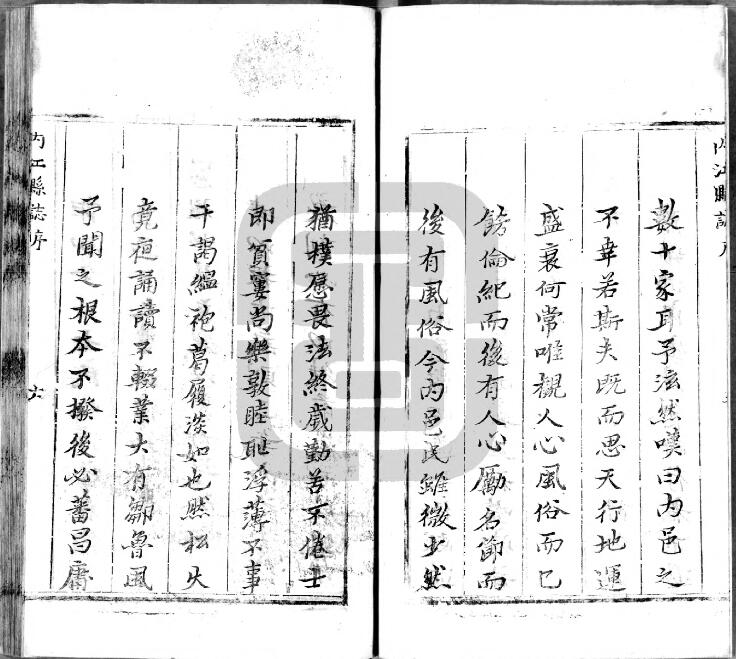 内江縣誌序
數十家耳予泫然嘆曰内邑之
不幸若斯夫既而思天行地運
盛衰何常唯觀人心風俗而已
飭倫紀而後有人心勵名節而
後有風俗今内邑民雖微少然
猶樸愿畏法終歲勤苦不倦士
即貧窶尚樂敦睦耻浮薄不事
干謁緼袍葛履淡如也然松火
竟夜誦讀不輟業大有鄒魯風
予聞之根本不撥後必蕃昌庸
内江縣誌序
六